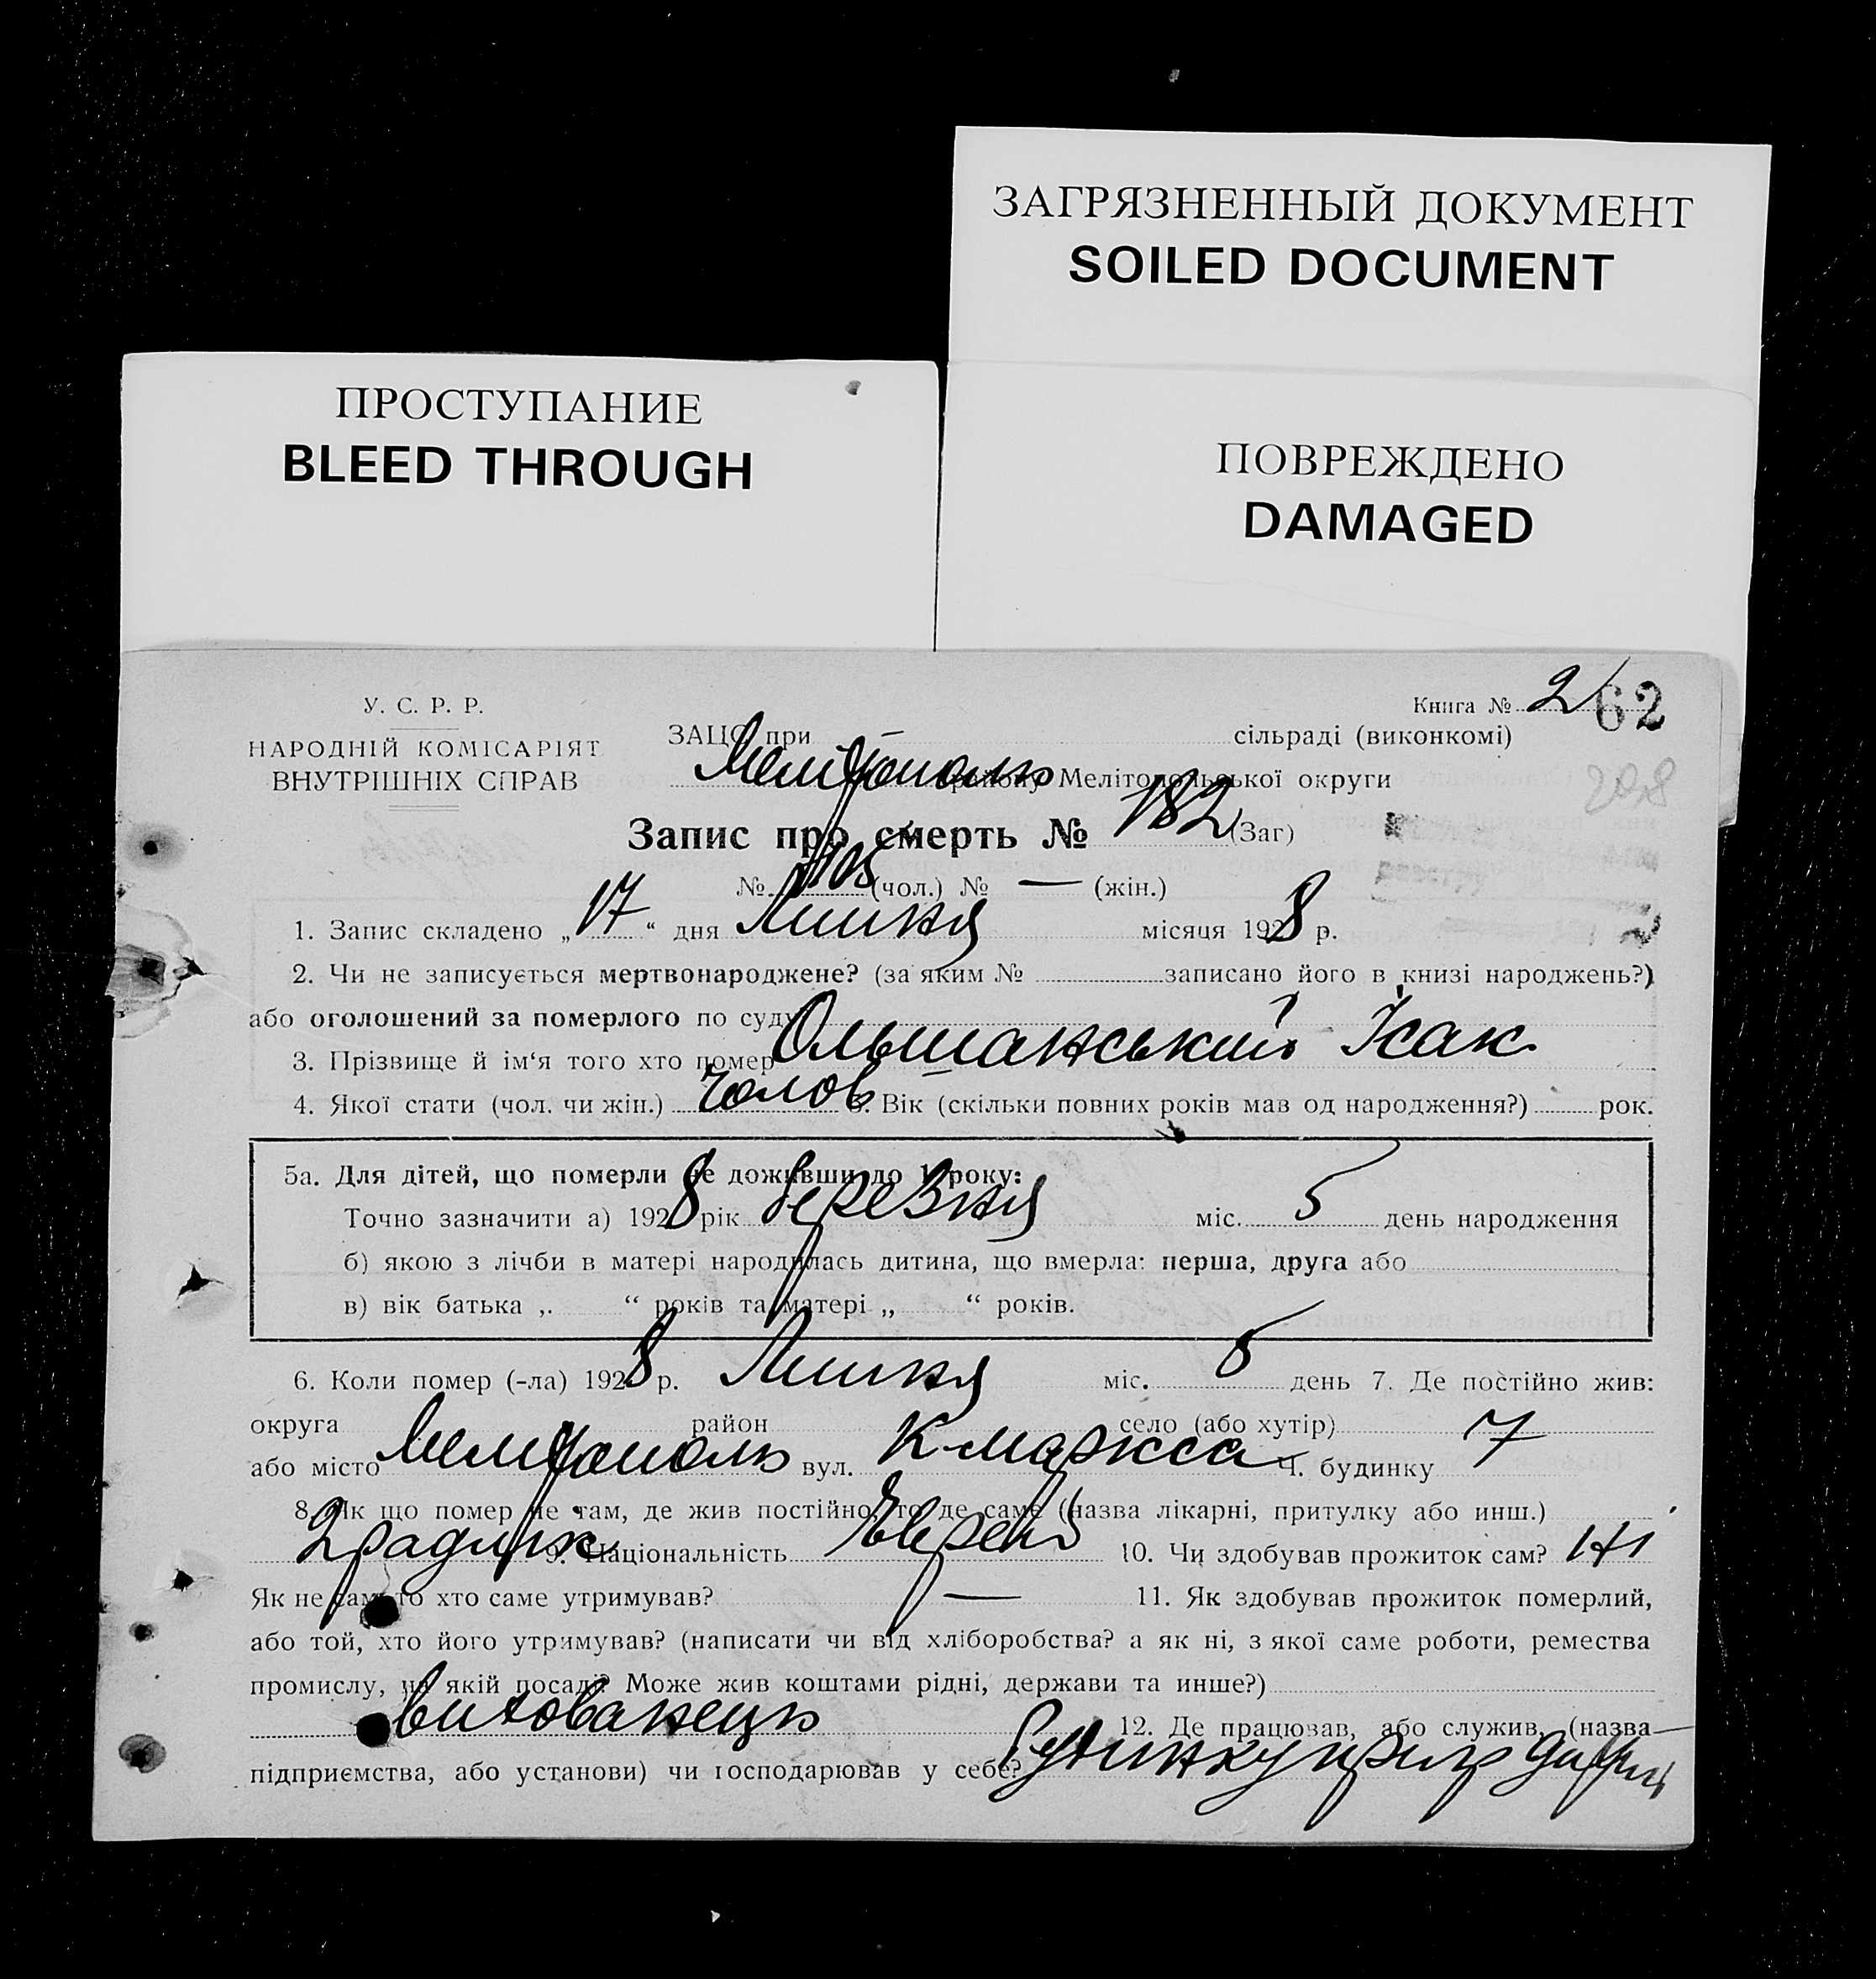 ЗАГРЯЗНЕННЫЙ ДОКУМЕНТ
SOILED DOCUMENT
ПРОСТУПАНИЕ
BLEED THROUGH
ПОВРЕЖДЕНО
DAMAGED
У. С. Р. Р.
НАРОДНІЙ КОМІСАРІЯТ
ВНУТРІШНІХ СПРАВ
Книга № 2 62
ЗАЦС при — сільраді (виконкомі)
Мелітополь району Мелітопольської округи
208
Запис про смерть № 182 (Заг)
№ 105 (чол.) № — (жін.)
1. Запис складено „ 17 “ дня Липня місяця 1928 р.
2. Чи не записується мертвонароджене? (за яким № записано його в книзі народжень?)
або оголошений за померлого по суду
3. Прізвище й ім‘я того хто помер Ольшанський Ісак
4. Якої стати (чол. чи жін.) Чолов 5. Вік (скільки повних років мав од народження?) рок.
5а. Для дітей, що померли не доживши до 1 року:
Точно зазначити а) 1928 рік березня міс. 5 день народження
б) якою з лічби в матері народилась дитина, що вмерла: перша, друга або
в) вік батька „ “ років та матері „ “ років.
6. Коли помер (-ла) 1928 р. Липня міс. день 7. Де постійно жив:
округа район село (або хутір)
або місто Мелітополь вул. К-маркса Ч. будинку 7
8. Як що помер не там, де жив постійно, то де саме (назва лікарні, притулку або инш.)
9. Національність Еврей 10. Чи здобував прожиток сам? Ні
Як не сам, то хто саме утримував? — 11. Як здобував прожиток померлий,
або той, хто його утримував? (написати чи від хліборобства? а як ні, з якої саме роботи, ремества
промислу, на якій посаді? Може жив коштами рідні, держави та инше?)
вихованець 12. Де працював, або служив, (назва
підприємства, або установи) чи господарював у себе?